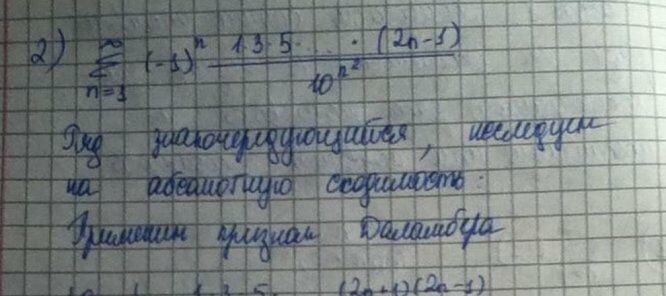 2) ∞ Σ n=1 (-1)^n 1·3·5·...·(2n-1) / 10^n²
Ряд знакочередующийся, исследуем
на абсолютную сходимость.
Применим признак Даламбера
1·3·5 (2n+1)(2n-1)